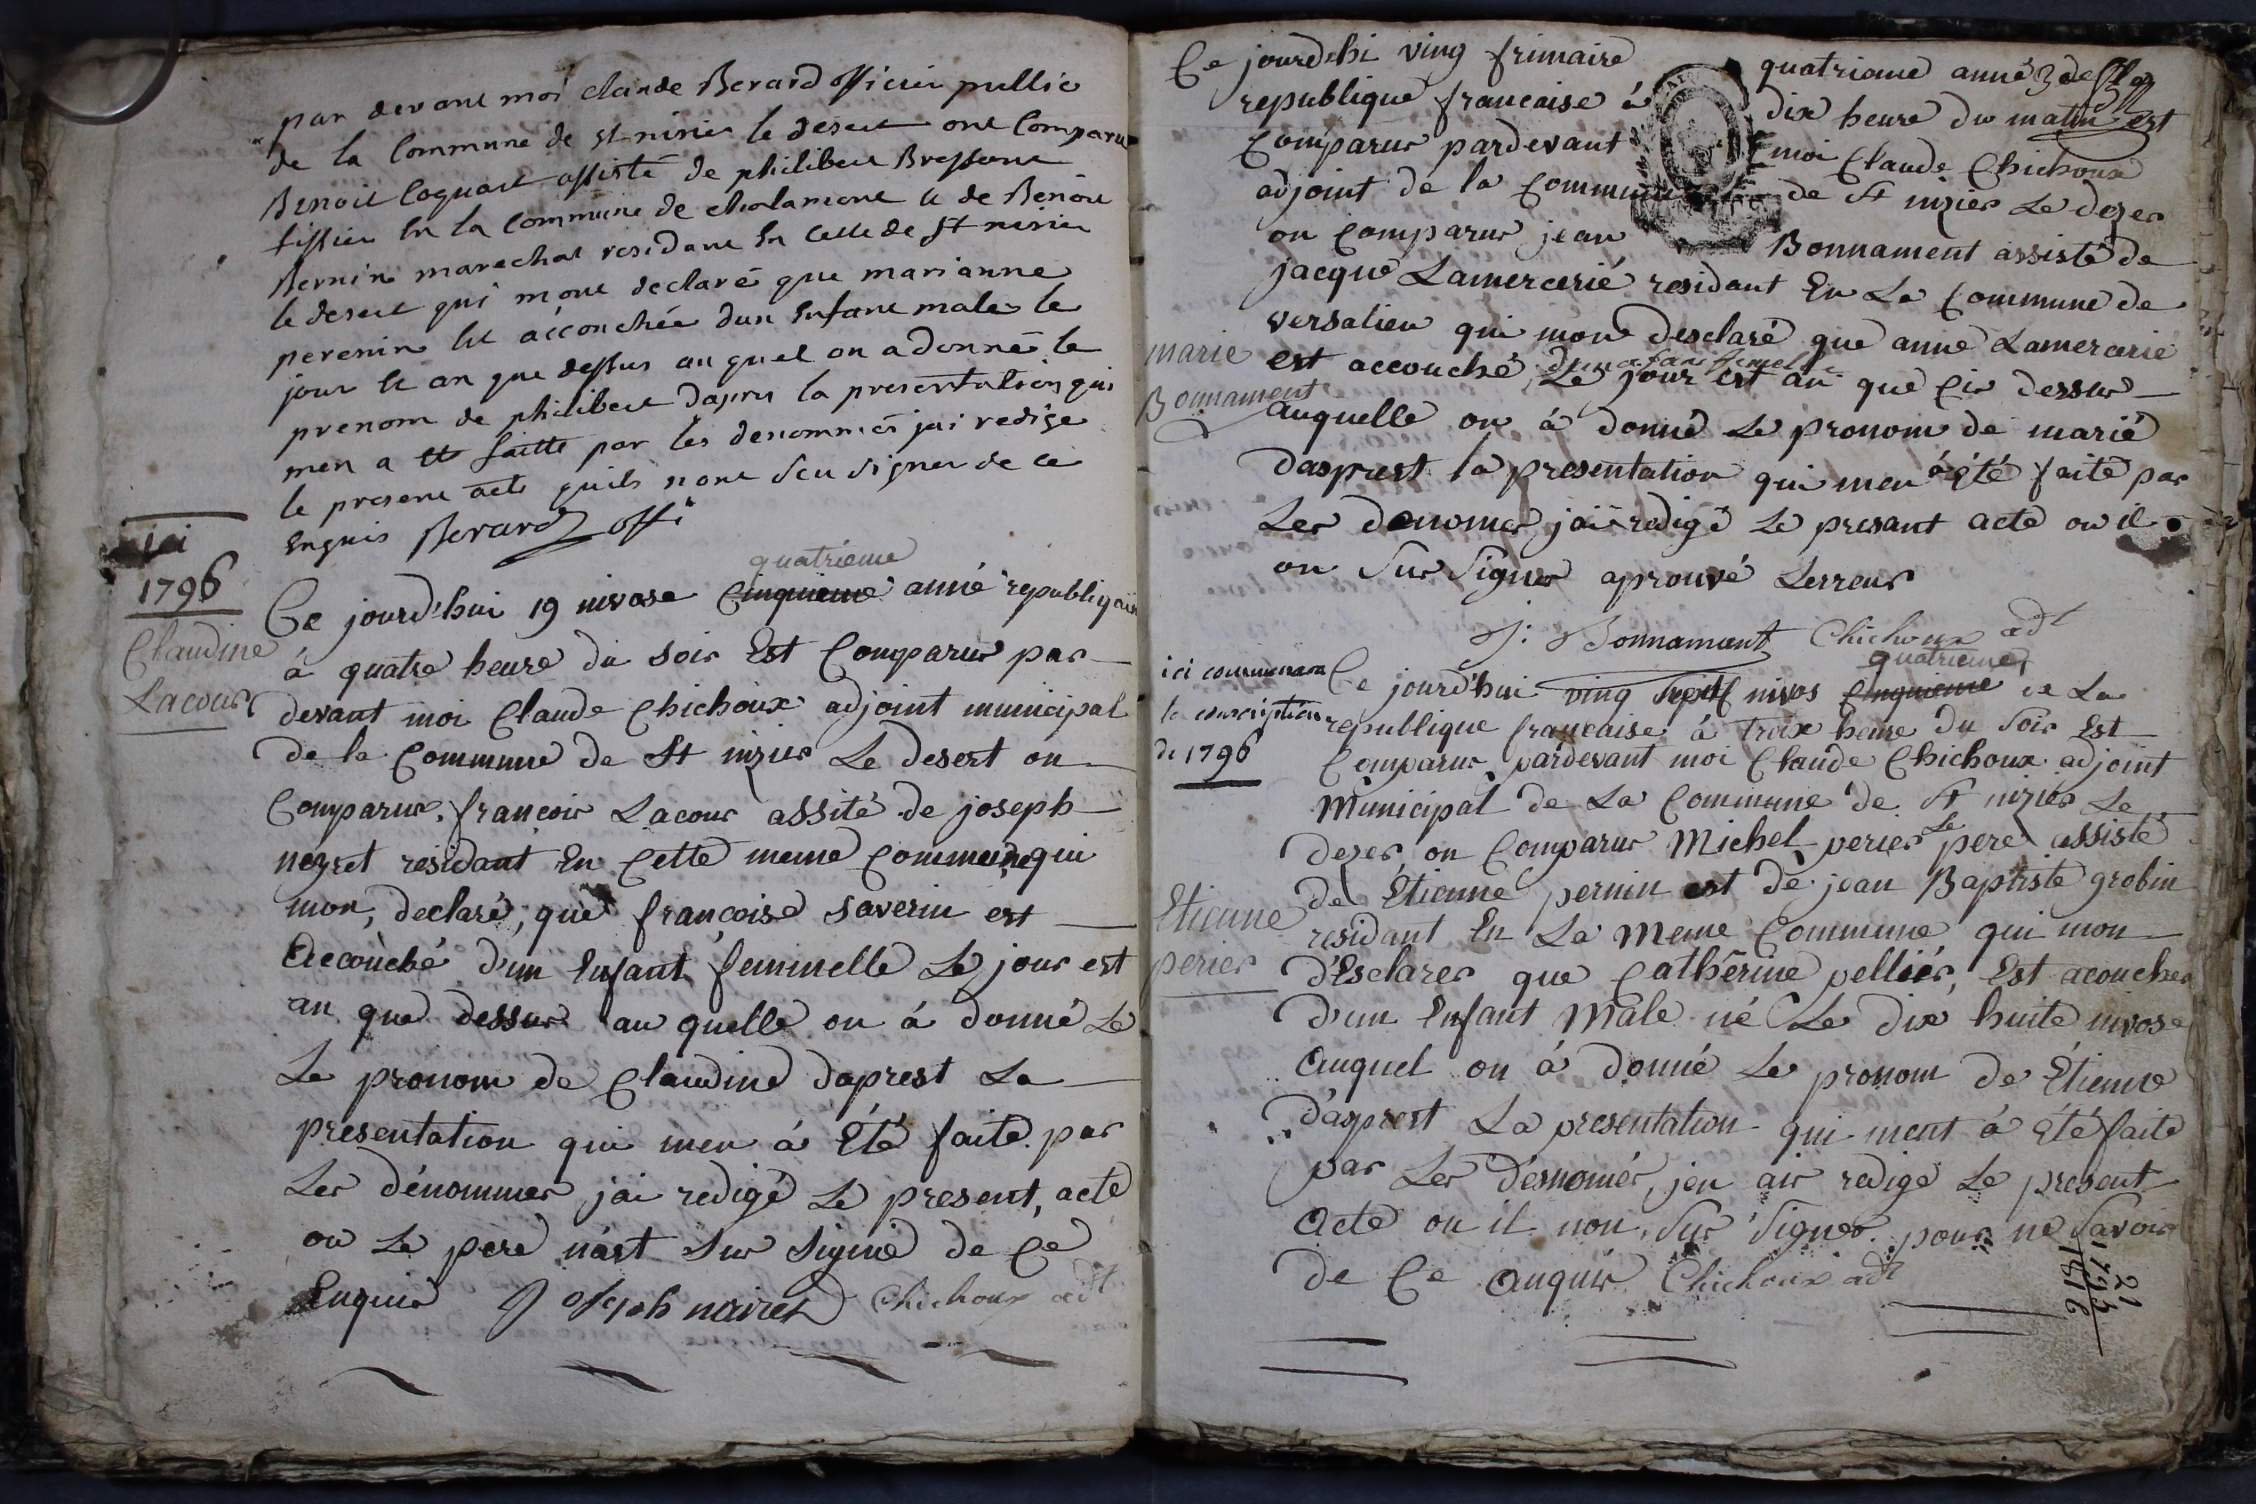 par devant moi claude Berard officier public
de la Commune de st nisier le desert ont Comparu
Benoit Coquart assisté de philibert Bressant
tissier En la Commune de chalamont & de Benoit
Bernin marechal residant En Celle de st nisier
le desert qui mont declaré que marianne
perenin Est accouchée dun Enfant male le
jour Et an que dessus au quel on a donné le
prenom de philibert dapres la presentation qui
men a ett faitte par les denommés jai redige
le present acte quils nont seu signer de ce
Enquis Berard offi
ici
1796
Claudine
Lacour
quatrieme
Ce jourd'hui 19 nivose Cinquieme anné republiqain
à quatre heure du soir Est Comparus par
devant moi Claude Chichoux adjoint municipal
de la Commune de St nizier Le desert on
Comparus françois Lacour assité de joseph
neyret residant En Cette meme Commune qui
mon, declaré, que françoise saverin est
accouché d'un Enfant feminelle Le jour est
an que dessus au quelle on á donné Le
Le pronom de Claudine daprest La
presentation qui men á Eté faite par
Les dénommer jai redigé Le present, acte
ou Le pere n'ast sur signié de Ce
Enquis Joseph nairet Chichoux adt
Ce jourdhi ving frimaire quatrieme anné 3 de
republique francaise á dix heure du matin est
Comparus pardevant moi Claude Chichoux
adjoint de la Commune de St nizier Le dezer
on Comparus jean Bonnament assisté de
jacque Lamercerié residant En La Commune de
versalieu qui mont desclaré que anne Lamercerie
marie
Bonnament
est accouché Le jour est an que Cis dessus
auquelle on á donné Le pronom de marié
dasprest la presentation qui men á été faite par
Les denomer jai redigé Le presant acte ou il
on Sur Signer aprouvé Lerreur
J: Bonnament Chichoux adt
ici commence
la conscription
de 1796
quatrieme
Ce jourd'hui ving Sept nivos Cinquieme de La
republique francaise á troix heure du Soir Est
Comparus pardevant moi Claude Chichoux adjoint
Municipal de La Commune de St nizier Le
dezer on Comparus Michel perier Le pere assisté
de Etienne pernin est de jean Baptiste grobin
Etienne
perier
residant En La Meme Commune qui mon
d'Esclarer que Cathérine pelliér, Est acoucher
d'un Enfant Male né Le dix huite nivose
auquel on á donné Le pronom de Étienne
d'asprest La presentation qui ment á été faite
par Les désnomér, jen air redigé Le present
acte ou il non Sur Signer pour ne Savoir
de Ce anquis Chichoux adt
21
1795
1816